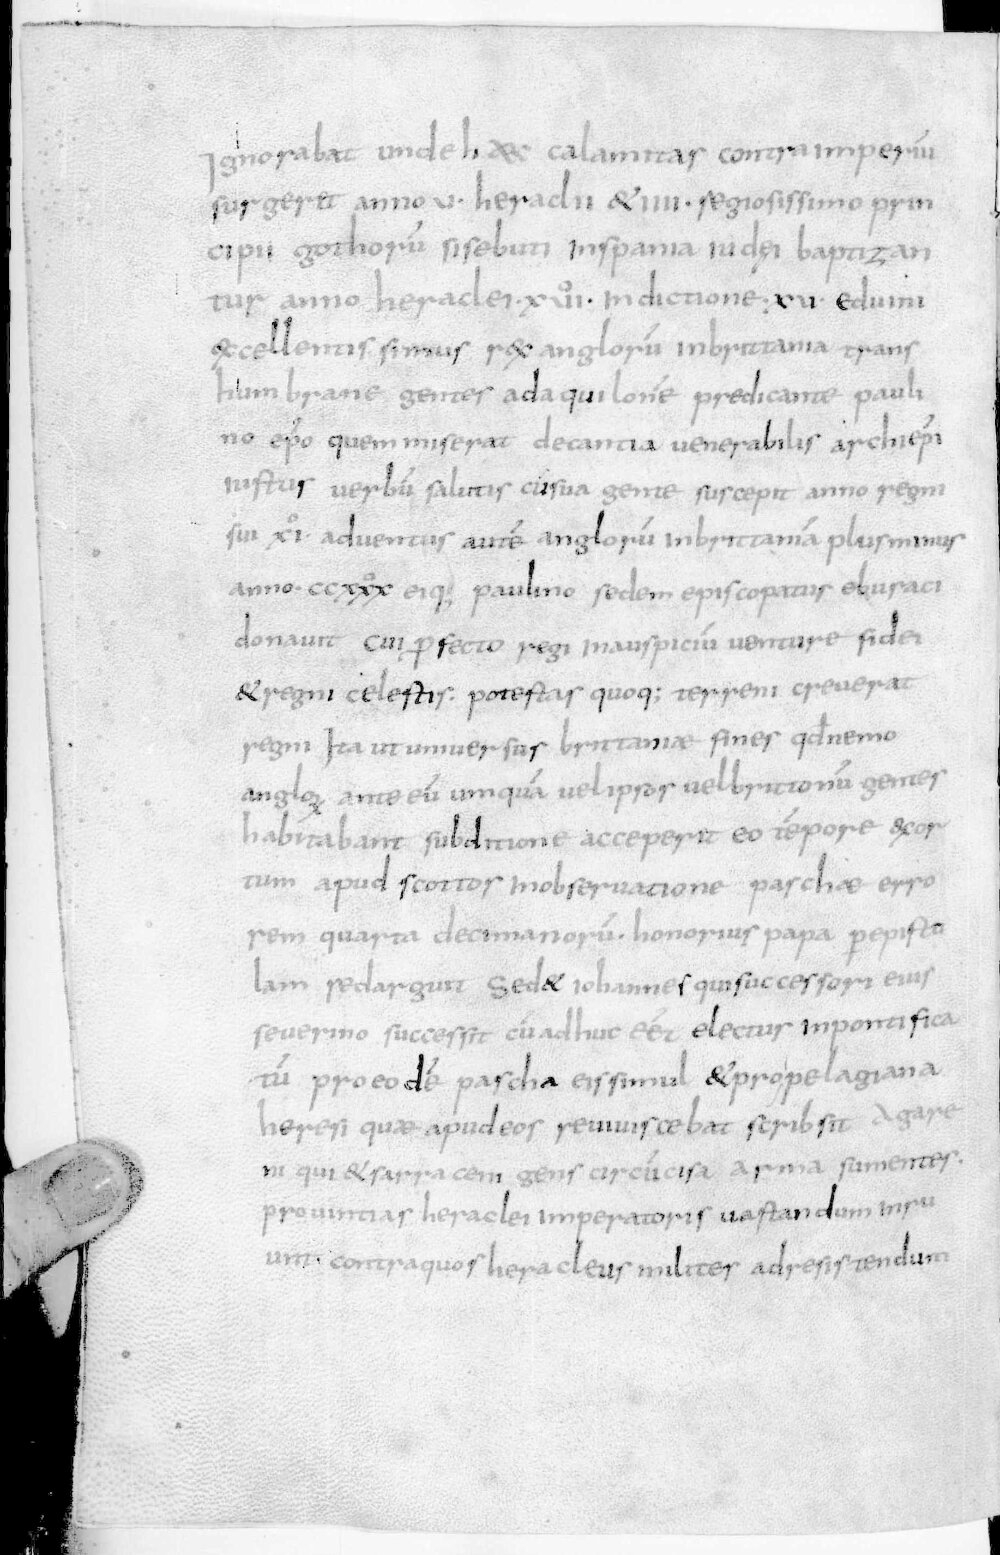 Ignorabat unde h&aelig;c calamitas contra imperiū
surgerit anno vi· heraclii & iiii· segiosissimo prin
cipii gothorū sisebuti inspania iudęi baptizan
tur anno heraclei· xvii· indictione· xvi· eduini
excellentissimus rex anglorū inbrittania trans
humbrane gentes adaquilonē predicante pauli
no ep̄o quem miserat decantia venerabilis archiep̄i
iustus verbū salutis cūsua gente suscepit anno regni
sui xi· adventus autē anglorū inbrittaniā plusminus
anno· ccxxx eiq; paulino sedem episcopatus eburaci
donavit cui ꝓfecto regi inauspiciū venture fidei
& regni celestis· potestas quoq; terreni creverat
regni Ita ut universus brittaniæ fines qđ nemo
angloꝝ ante eū umquā vel ipsos vel brittonū gentes
habitabant subditione acceperit eo tēpore exor
tum apud scottos inobservatione paschæ erro
rem quarta decimanorū· honorius papa ꝑ epistu
lam redarguit Sed& iohannes qui successori eius
severino successit cū adhuc eēt electus inpontifica
tū pro eodē pascha eis simul & pro pelagiana
heresi quæ apudeos reviviscebat scribsit Agare
ni qui & sarraceni gens circūcisa arma sumentes·
provintias heraclei imperatoris vastandum inru
unt· contraquos heracleus milites adresistendum